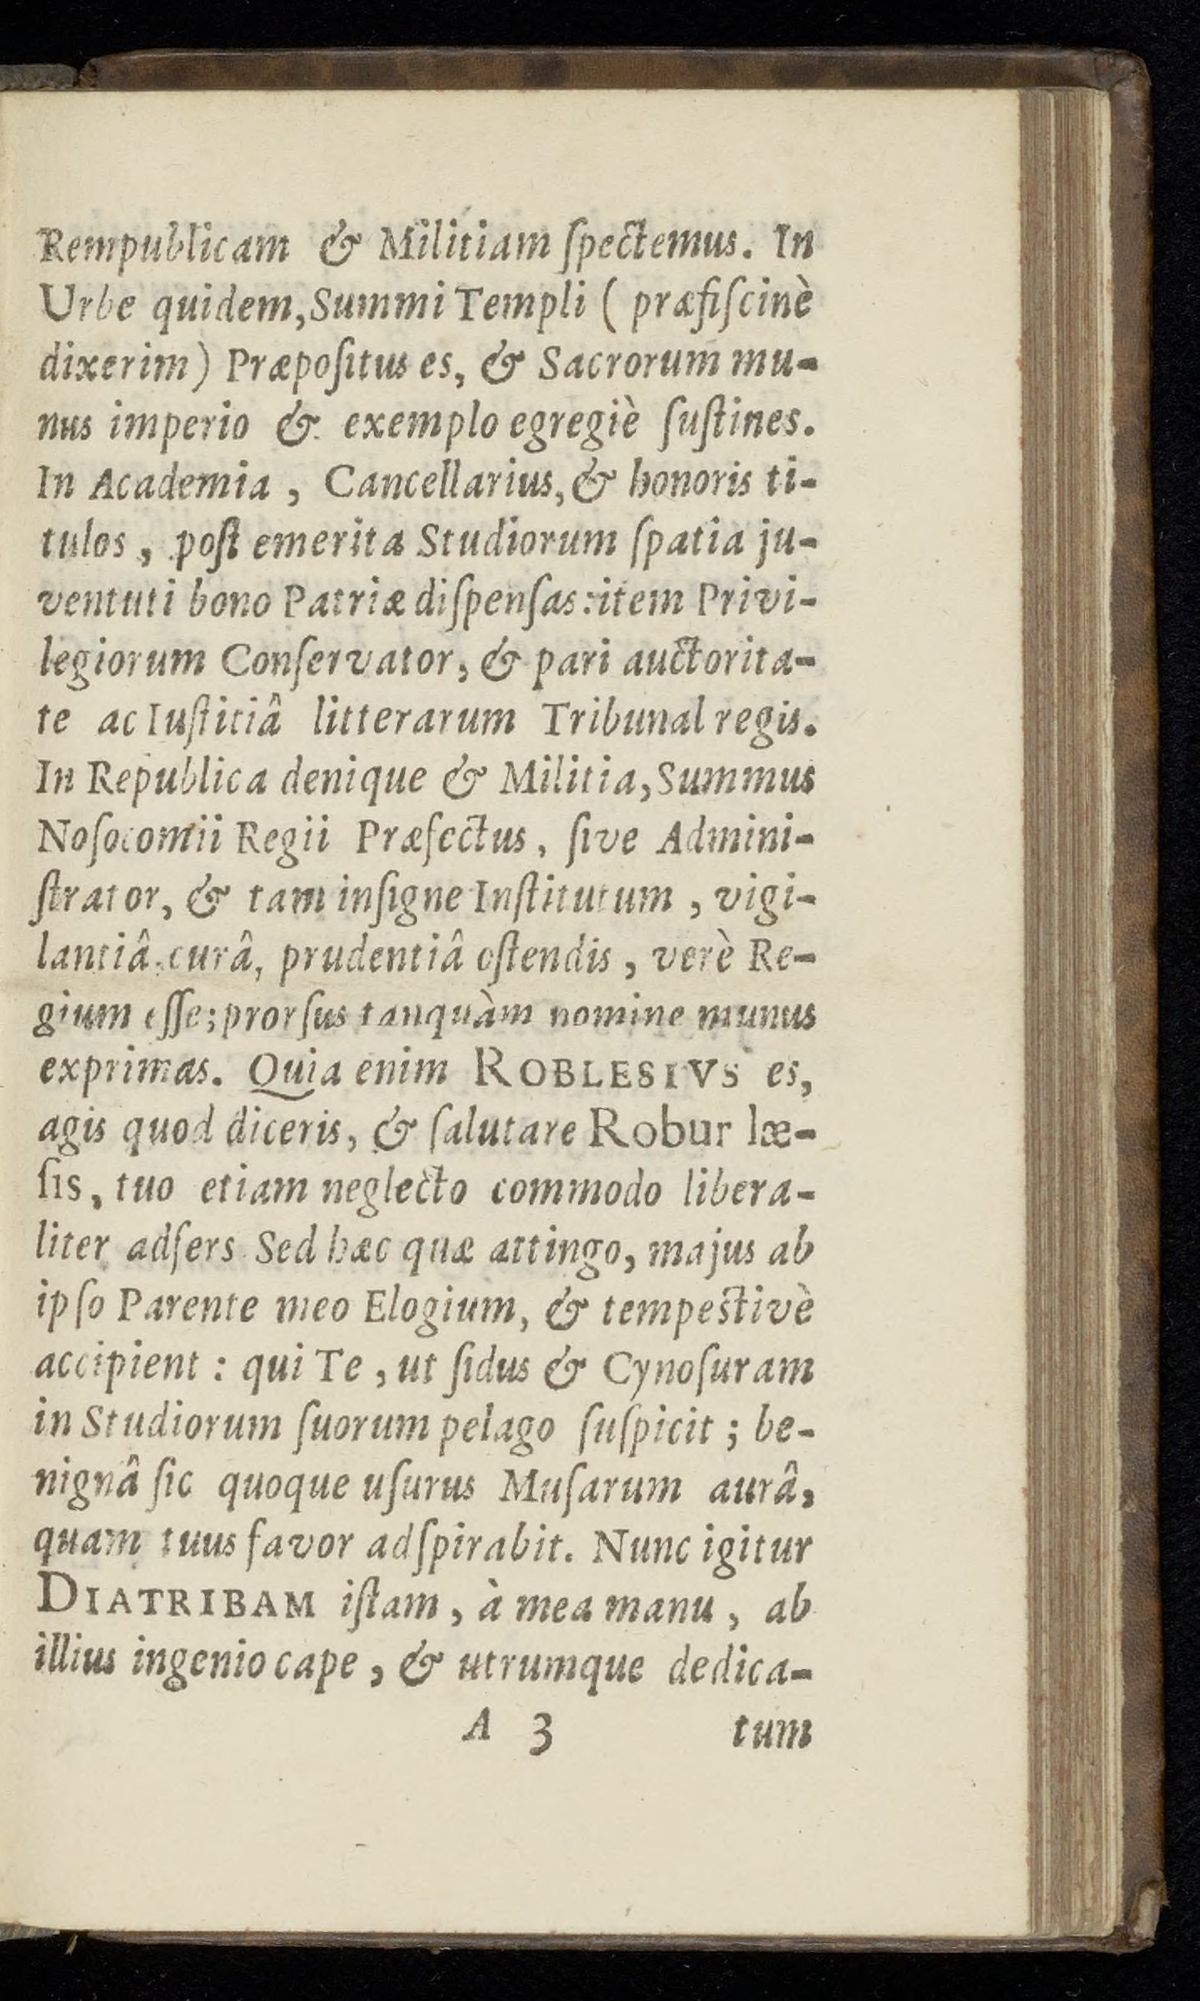 Rempublicam & Militiam ſpectemus. In
Urbe quidem, Summi Templi ( præfiſcinè
dixerim) Præpoſitus es, & Sacrorum mu-
nus imperio & exemplo egregiè ſuſtines.
In Academia, Cancellarius, & honoris ti-
tulos, poſt emerita Studiorum ſpatia ju-
ventuti bono Patriæ diſpenſas: item Privi-
legiorum Conſervator, & pari auctorita-
te ac Iuſtitiâ litterarum Tribunal regis.
In Republica denique & Militia, Summus
Noſocomii Regii Præfectus, ſive Admini-
ſtrator, & tam inſigne Inſtitutum, vigi-
lantiâ, curâ, prudentiâ oſtendis, verè Re-
gium eſſe; prorſus tanquàm nomine munus
exprimas. Quia enim ROBLESIVS es,
agis quod diceris, & ſalutare Robur læ-
ſis, tuo etiam neglecto commodo libera-
liter adſers Sed hæc quæ attingo, majus ab
ipſo Parente meo Elogium, & tempeſtivè
accipient : qui Te, ut ſidus & Cynoſuram
in Studiorum ſuorum pelago ſuſpicit; be-
nignâ ſic quoque uſurus Muſarum aurâ,
quam tuus favor adſpirabit. Nunc igitur
DIATRIBAM iſtam, à mea manu, ab
illius ingenio cape, & utrumque dedica-
A 3 tum